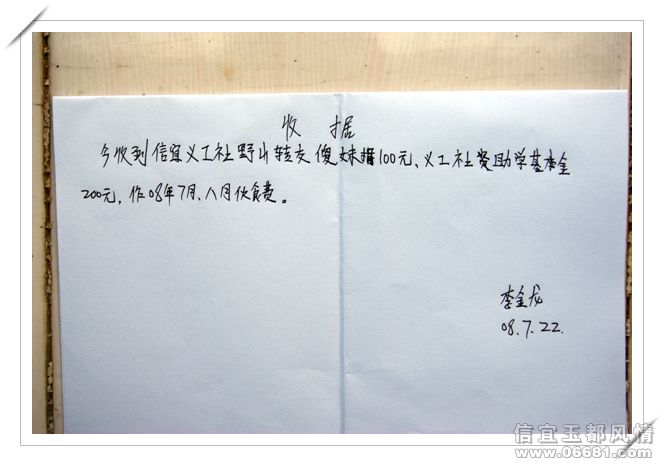 收据
今收到信宜义工社野山转交傻妹捐100元、义工社资助学基本金
200元，作08年7月、八月伙食费。
李金龙
08.7.22.
信宜玉都风情
www.06681.com